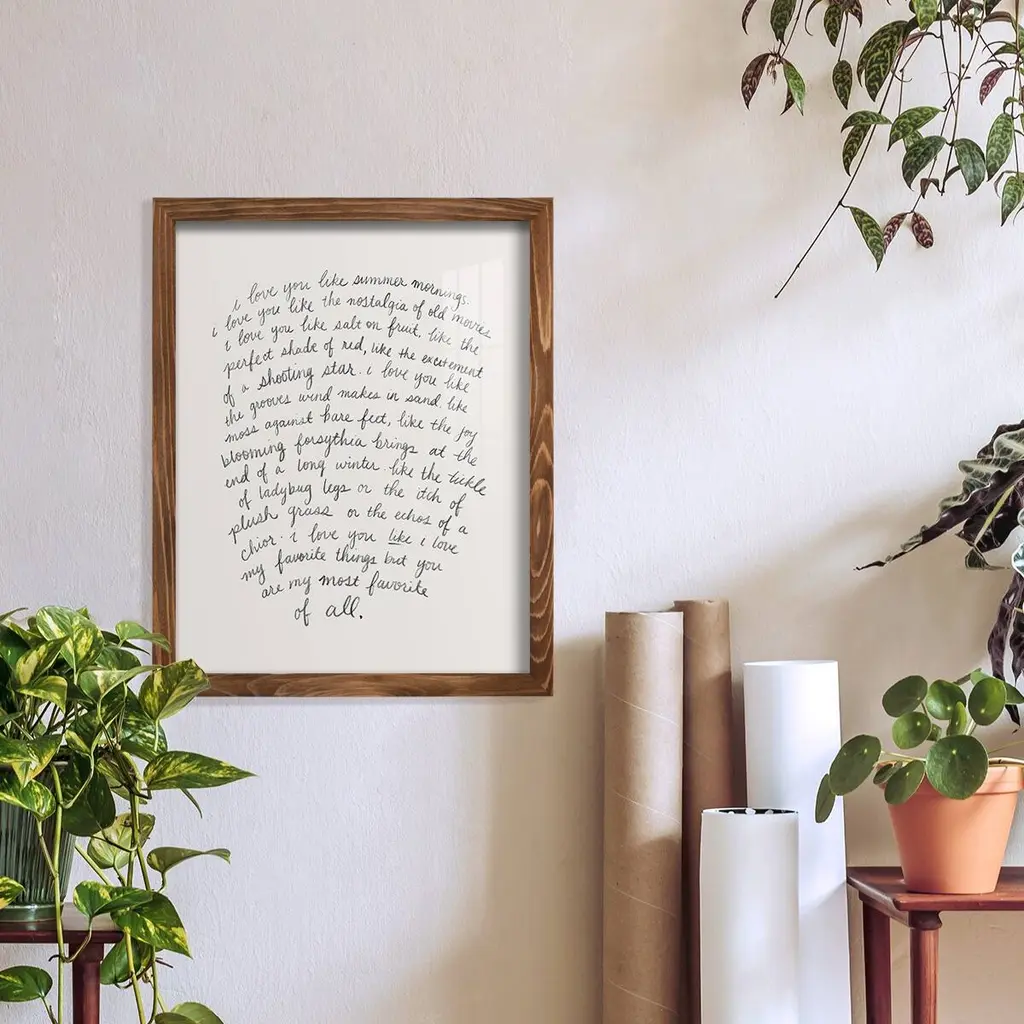 i love you like summer mornings.
i love you like the nostalgia of old movies
i love you like salt on fruit, like the
perfect shade of red, like the excitement
of a shooting star. i love you like
the grooves wind makes in sand. like
moss against bare feet, like the joy
blooming forsythia brings at the
end of a long winter. like the tickle
of ladybug legs or the itch of
plush grass or the echos of a
chior. i love you like i love
my favorite things but you
are my most favorite
of all.